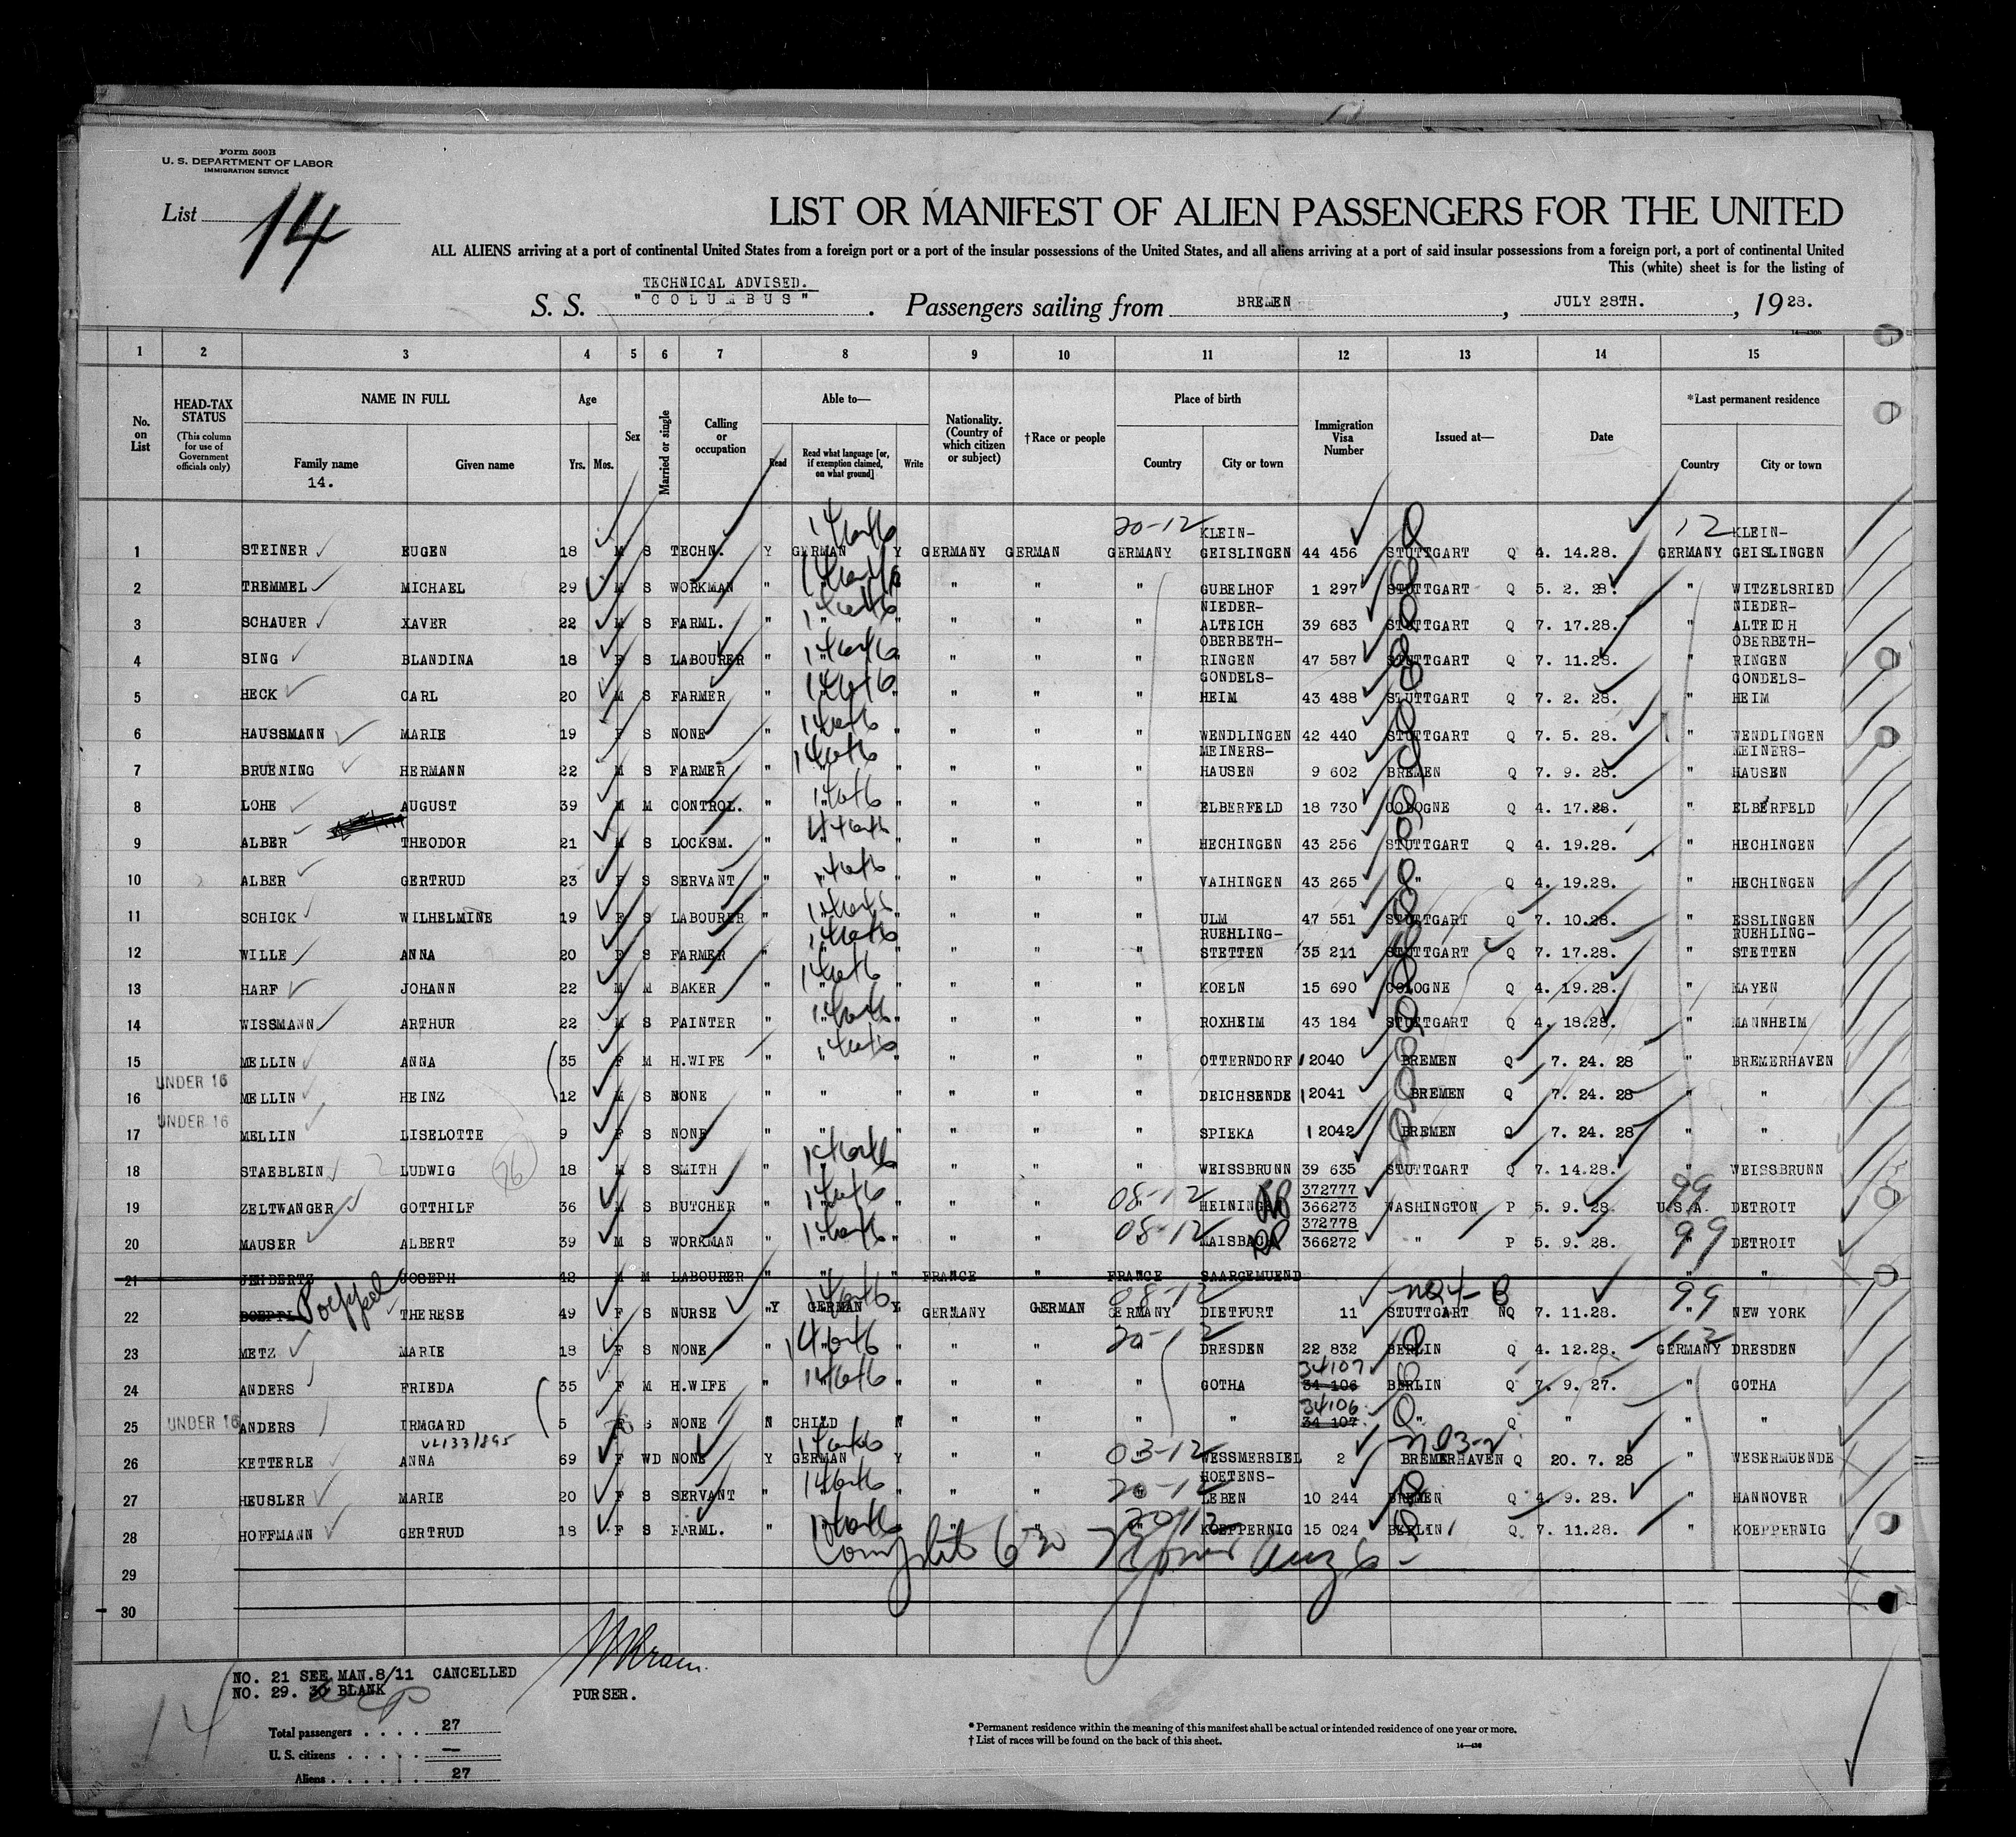 Form 500B
U. S. DEPARTMENT OF LABOR
IMMIGRATION SERVICE
List 14
LIST OR MANIFEST OF ALIEN PASSENGERS FOR THE UNITED
ALL ALIENS arriving at a port of continental United States from a foreign port or a port of the insular possessions of the United States, and all aliens arriving at a port of said insular possessions from a foreign port, a port of continental United
This (white) sheet is for the listing of
TECHNICAL ADVISED.
S. S. "COLUMBUS". Passengers sailing from BREMEN, JULY 28TH., 1928.
1 2 3 4 5 6 7 8 9 10 11 12 13 14 15
No. on List
HEAD-TAX STATUS
(This column for use of Government officials only)
NAME IN FULL
Family name
Given name
14.
Age
Yrs. Mos.
Sex
Married or single
Calling or occupation
Able to—
Read
Read what language [or, if exemption claimed, on what ground]
Write
Nationality. (Country of which citizen or subject)
†Race or people
Place of birth
Country
City or town
Immigration Visa Number
Issued at—
Date
*Last permanent residence
Country
City or town
20-12 KLEIN- 12 KLEIN-
1 STEINER EUGEN 18 M S TECHN. Y GERMAN Y GERMANY GERMAN GERMANY GEISLINGEN 44 456 STUTTGART Q 4. 14.28. GERMANY GEISLINGEN
2 TREMMEL MICHAEL 29 M S WORKMAN " " " " " " GUBELHOF 1 297 STUTTGART Q 5. 2. 28. " WITZELSRIED
NIEDER- NIEDER-
3 SCHAUER XAVER 22 M S FARML. " " " " " " ALTEICH 39 683 STUTTGART Q 7. 17.28. " ALTEICH
OBERBETH- OBERBETH-
4 SING BLANDINA 18 F S LABOURER " " " " " " RINGEN 47 587 STUTTGART Q 7. 11.28. " RINGEN
GONDELS- GONDELS-
5 HECK CARL 20 M S FARMER " " " " " " HEIM 43 488 STUTTGART Q 7. 2. 28. " HEIM
6 HAUSSMANN MARIE 19 F S NONE " " " " " " WENDLINGEN 42 440 STUTTGART Q 7. 5. 28. " WENDLINGEN
MEINERS- MEINERS-
7 BRUENING HERMANN 22 M S FARMER " " " " " " HAUSEN 9 602 BREMEN Q 7. 9. 28. " HAUSEN
8 LOHE AUGUST 39 M M CONTROL. " " " " " " ELBERFELD 18 730 COLOGNE Q 4. 17.28. " ELBERFELD
9 ALBER THEODOR 21 M S LOCKSM. " " " " " " HECHINGEN 43 256 STUTTGART Q 4. 19.28. " HECHINGEN
10 ALBER GERTRUD 23 F S SERVANT " " " " " " VAIHINGEN 43 265 " Q 4. 19.28. " HECHINGEN
11 SCHICK WILHELMINE 19 F S LABOURER " " " " " " ULM 47 551 STUTTGART Q 7. 10.28. " ESSLINGEN
RUEHLING- RUEHLING-
12 WILLE ANNA 20 F S FARMER " " " " " " STETTEN 35 211 STUTTGART Q 7. 17.28. " STETTEN
13 HARF JOHANN 22 M M BAKER " " " " " " KOELN 15 690 COLOGNE Q 4. 19.28. " MAYEN
14 WISSMANN ARTHUR 22 M S PAINTER " " " " " " ROXHEIM 43 184 STUTTGART Q 4. 18.28. " MANNHEIM
15 MELLIN ANNA 35 F M H.WIFE " " " " " " OTTERNDORF 12040 BREMEN Q 7. 24. 28 " BREMERHAVEN
UNDER 16
16 MELLIN HEINZ 12 M S NONE " " " " " " DEICHSENDE 12041 BREMEN Q 7. 24. 28 " "
UNDER 16
17 MELLIN LISELOTTE 9 F S NONE " " " " " " SPIEKA 12042 BREMEN Q 7. 24. 28 " "
18 STAEBLEIN LUDWIG 18 M S SMITH " " " " " " WEISSBRUNN 39 635 STUTTGART Q 7. 14.28. " WEISSBRUNN
08-12 372777 99
19 ZELTWANGER GOTTHILF 36 M S BUTCHER " " " " " HEININGEN 366273 WASHINGTON P 5. 9. 28. U.S.A. DETROIT
08-12 372778 99
20 MAUSER ALBERT 39 M S WORKMAN " " " " " " MAISBACH 366272 " P 5. 9. 28. " DETROIT
21 JEHBERTZ JOSEPH M M LABOURER " " " FRANCE " FRANCE SAARGEMUEND " "
08-12 NQ4-B 99
22 Poeppel THERESE 49 F S NURSE "Y GERMAN Y GERMANY GERMAN GERMANY DIETFURT 11 STUTTGART NQ 7. 11.28. " NEW YORK
20-12 12
23 METZ MARIE 18 F S NONE " " " " " DRESDEN 22 832 BERLIN Q 4. 12.28. GERMANY DRESDEN
34107
24 ANDERS FRIEDA 35 F M H.WIFE " " " " " " GOTHA 34 106 BERLIN Q 7. 9. 27. " GOTHA
34106
UNDER 16
25 ANDERS IRMGARD 5 F S NONE N CHILD N " " " " 34 107 " Q " " "
03-12
26 KETTERLE ANNA 69 F WD NONE Y GERMAN Y " " WESSMERSIEL 2 BREMERHAVEN Q 20. 7. 28 " WESERMUENDE
20-12 HOETENS-
27 HEUSLER MARIE 20 F S SERVANT " " " " " LEBEN 10 244 BREMEN Q 4. 9. 28. " HANNOVER
2012
28 HOFFMANN GERTRUD 18 F S FARML. " " " " " KOEPPERNIG 15 024 BERLIN Q 7. 11.28. " KOEPPERNIG
29
30
NO. 21 SEE MAN.8/11 CANCELLED
NO. 29. 30 BLANK
PURSER.
14
Total passengers . . . . 27
U. S. citizens . . . . . —
Aliens . . . . . . 27
* Permanent residence within the meaning of this manifest shall be actual or intended residence of one year or more.
† List of races will be found on the back of this sheet.